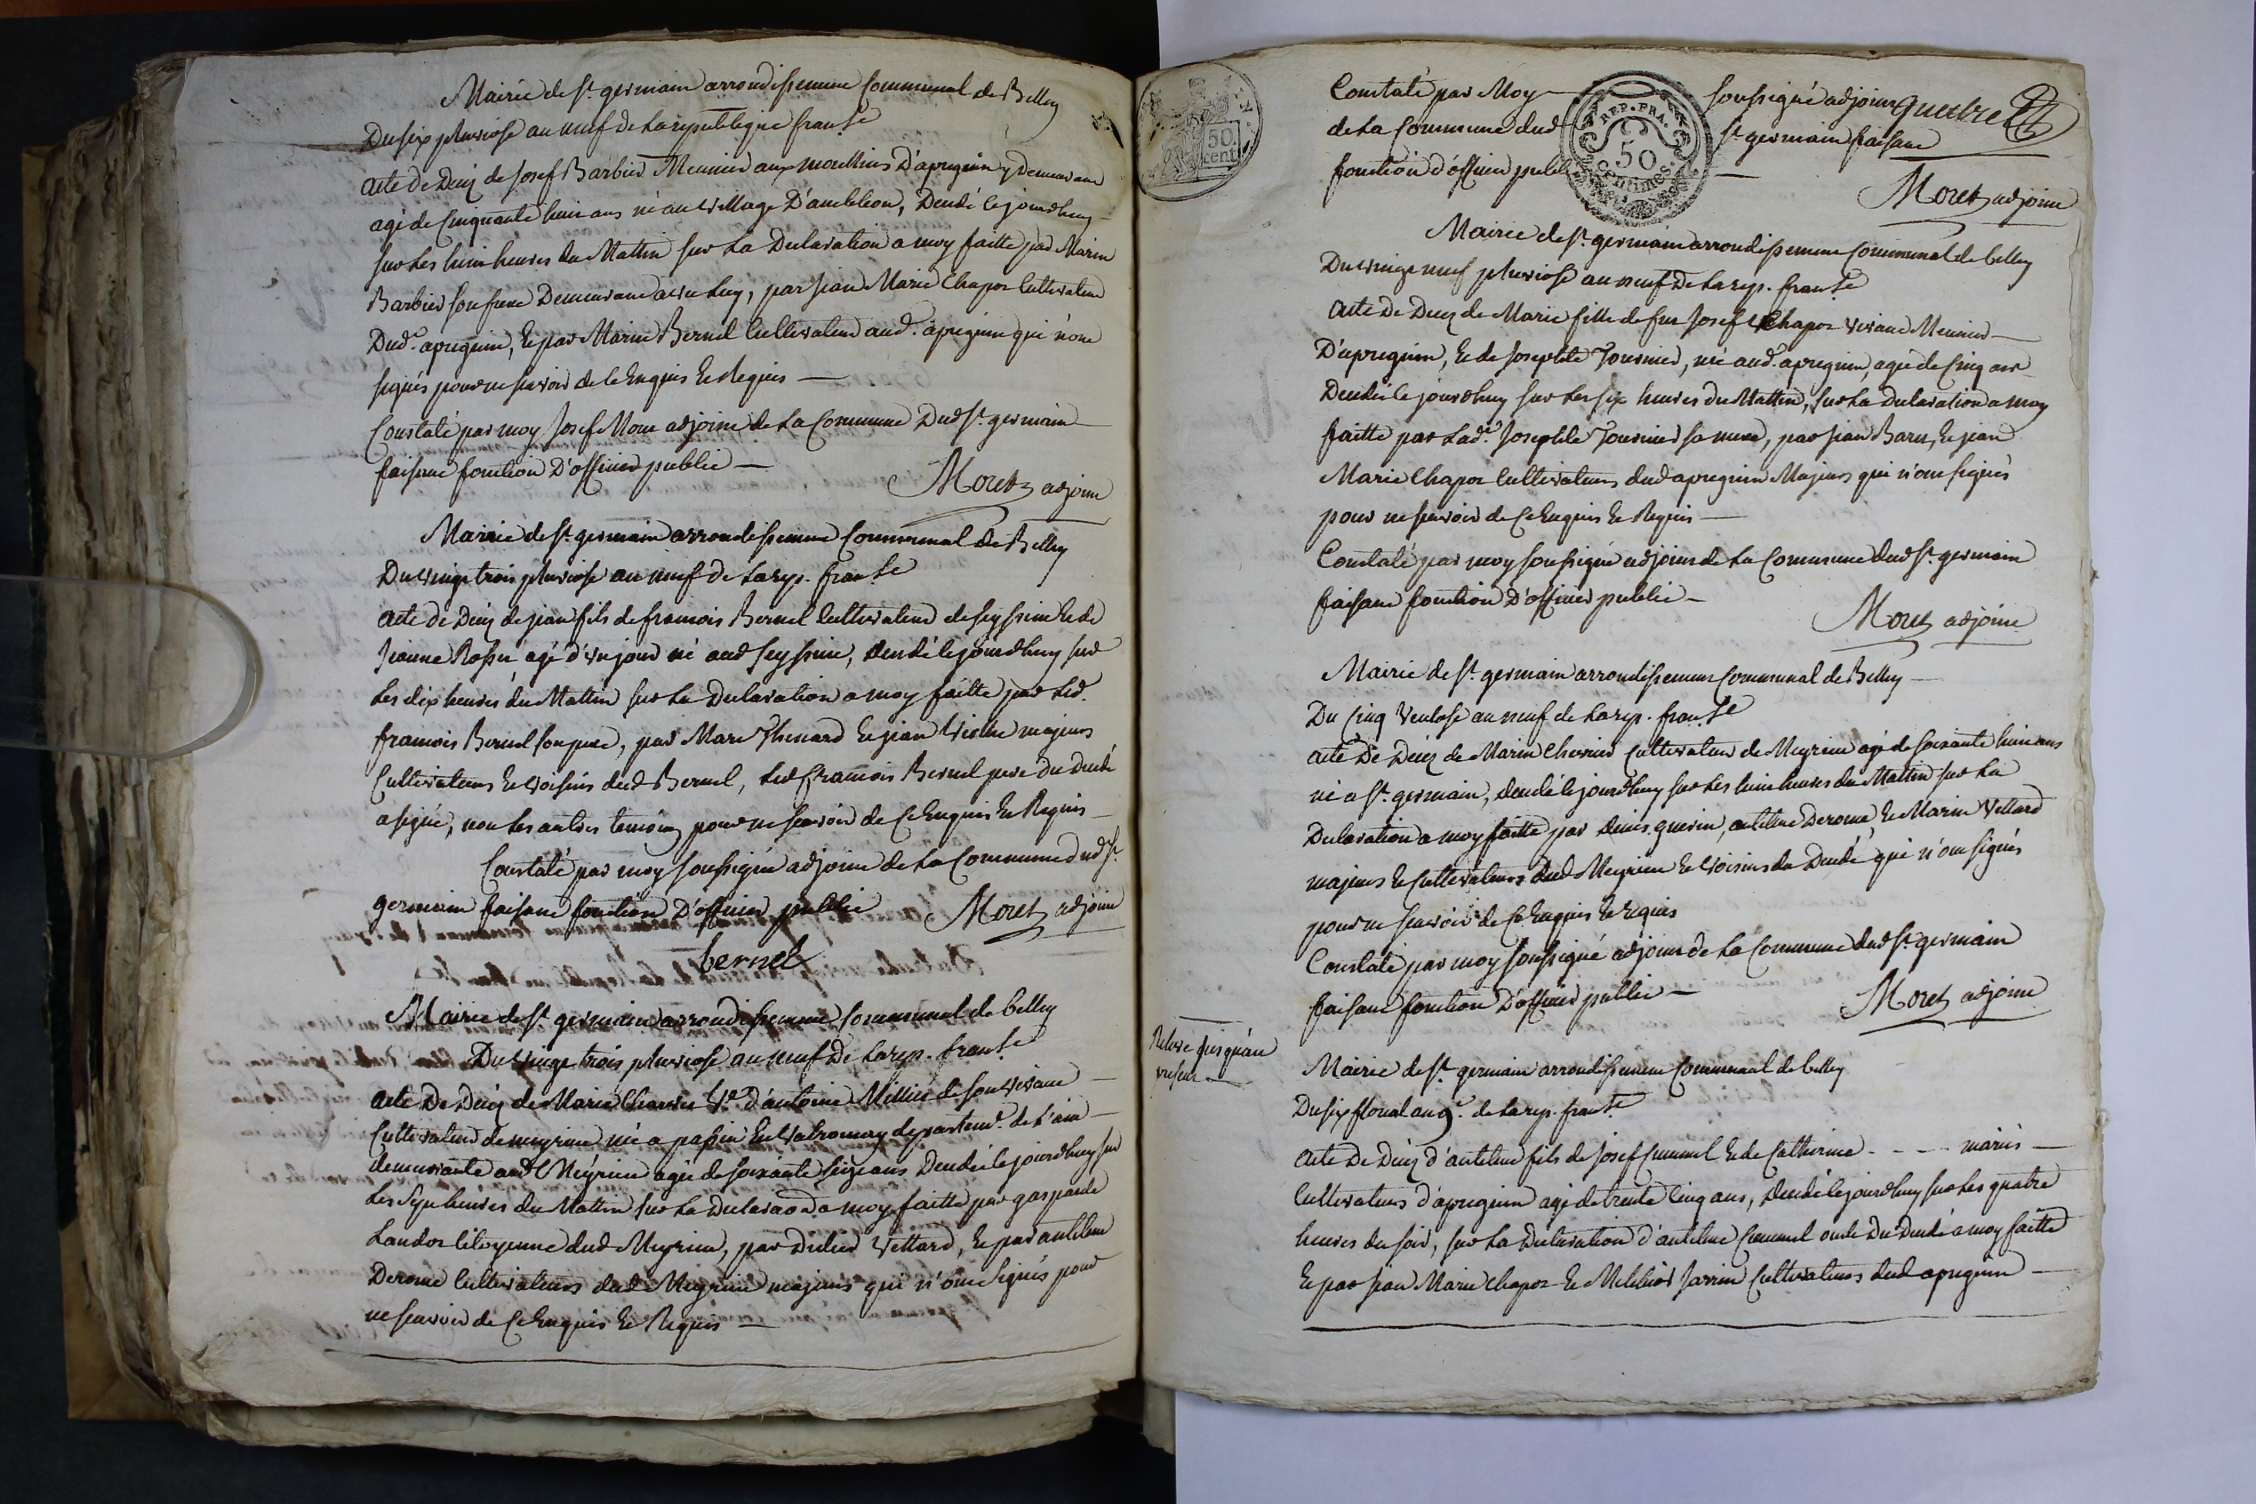 Mairie de St. germain arrondissement Communal de Belley
Du six pluviose an neuf de La republique franse
acte de Decez de Josef Barbier Meunier aux moullins D'apregnin y Demeurant
agé de Cinquante huit ans né au village D'ambleon, Decedé le jourdhuy
sur Les huit heures du Mattin sur La Declaration a moy faitte par Marin
Barbier son frere Demeurant avec Luy, par jean Marie Chapot Cultivateur
Dud. apregnin, et par Marin Bernel Cultivateur aud. apregnin qui n'ont
signés pour ne scavoir de ce Enquis et Requis
Constaté par moy Josef Moret adjoint de La Commune Dud St. germain
faisant fonction D'officier public
Moret adjoint
Mairie de St. germain arrondissement Communal de Belley
Du vingt trois pluviose an neuf de La rep. franse
acte de Decez de jean fils de francois Bernel Cultivateur de seyssin et de
Jeanne Rossi agé d'un jour né aud seyssin, decedé le jourdhuy sur
Les dix heures du Mattin sur La Declaration a moy faitte par Led.
francois Bernel son pere, par Marc Thenard et jean majeurs
Cultivateurs et voisins dud Bernel, Led francois Bernel pere du Decedé
a signé, non Les autres temoins pour ne scavoir de Ce Enquis et Requis
Constaté par moy soussigné adjoint de La Commune dud St.
germain faisant fonction D'officier public Moret adjoint
bernel
Mairie de St. germain arrondissement Communal de belley
Du vingt trois pluviose an neuf De La rep. franse
acte De Decez de Marie Charvet Ve. d'antoine Millier de son vivant
Cultivateur de meyrieu née a passin en valromey departemt. de L'ain
demeurante aud Meyrieu agée de soixante seize ans Decedée le jourdhuy sur
Les sept heures du Mattin sur La Declaraon a moy faitte par gasparde
Landoz Citoyenne dud Meyrieu, par Didier Vettard, et par antelme
Derome Cultivateurs dud Meyrieu majeurs qui n'ont signés pour
ne scavoir de Ce Enquis et Requis
Constaté par Moy soussigné adjoint
de La Commune dud St. germain faisant
fonction d'officier public
REP. FRA.
50
centimes
50
cent
Moret adjoint
Mairie de St. germain arrondissement Communal de belley
Du vingt neuf pluviose an neuf De La rep. franse
acte De Decez de Marie fille de feu Josef Chapot vivant Meunier
D'apregnin, et de Josephte Tournier, née aud. apregnin, agée de Cinq ans
Decedée le jourdhuy sur Les six heures du Mattin, sur La Declaration a moy
faitte par Lade. Josephte Tournier sa mere, par jean Barn, et jean
Marie Chapot Cultivateurs dud apregnin Majeurs qui n'ont signés
pour ne scavoir de Ce Enquis et Requis
Constaté par moy soussigné adjoint de La Commune dud St. germain
faisant fonction D'officier public
Moret adjoint
Mairie de St. germain arrondissement Communal de Belley
Du Cinq Ventose an neuf de La rep. franse
acte De Decez de Marin Chervier Cultivateur de Meyrieu agé de soixante huit ans
né a St. germain, decedé le jourdhuy sur Les huit heures du Mattin sur La
Declaration a moy faitte par denis guerin, antelme Derome et Marin Vettard
majeurs et Cultivateurs dud Meyrieu et voisins du Decedé qui n'ont signés
pour ne scavoir de Ce Enquis et Requis
Constaté par moy soussigné adjoint de La Commune dud St. germain
faisant fonction D'officier public
Moret adjoint
Mairie de St. germain arrondissement Communal de belley
Du six floreal an 9e. de La rep. franse
acte De Decez d'antelme fils de Josef Crummel et de Catherine - - - - mariés
Cultivateurs d'apregnin agé de trente Cinq ans, decedé le jourdhuy sur Les quatre
heures du soir, sur La Declaration d'antelme Crummel oncle Du Decedé a moy faitte
et par jean Marie Chapot et Melchior Jarrin Cultivateurs dud apregnin